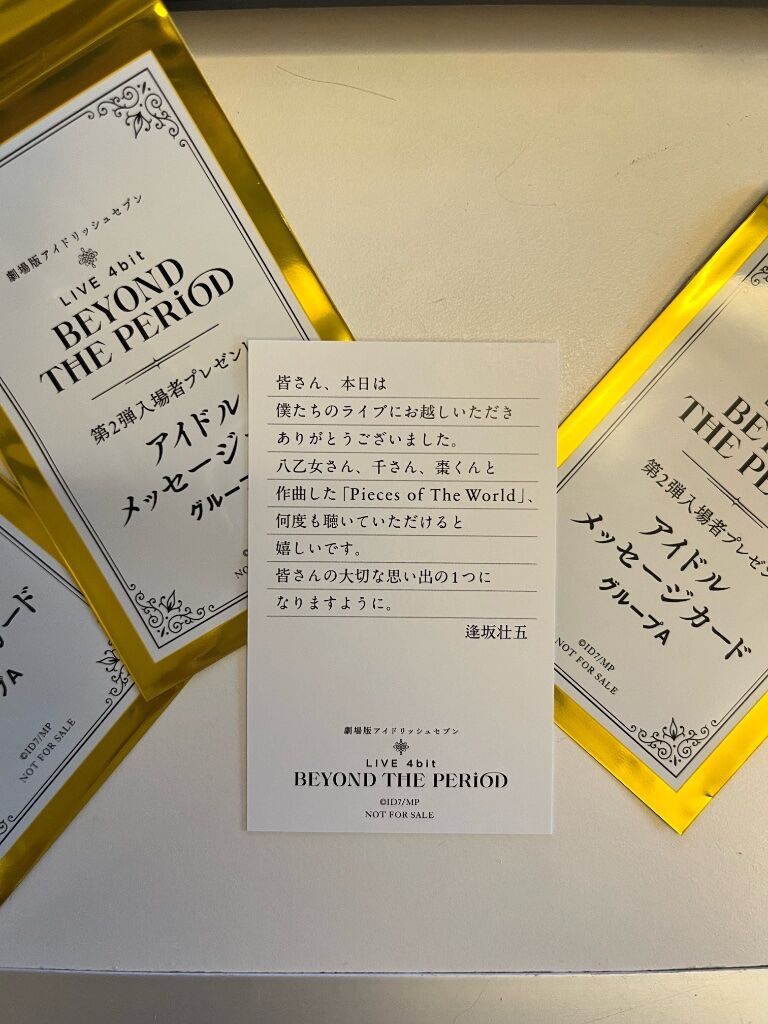 劇場版アイドリッシュセブン
LIVE 4bit
BEYOND
THE PERiOD
第2弾入場者プレゼン
アイドル
メッセージ
グループ
皆さん、本日は
僕たちのライブにお越しいただき
ありがとうございました。
八乙女さん、千さん、棗くんと
作曲した「Pieces of The World」、
何度も聴いていただけると
嬉しいです。
皆さんの大切な思い出の1つに
なりますように。
逢坂壮五
劇場版アイドリッシュセブン
LIVE 4bit
BEYOND THE PERiOD
©ID7/MP
NOT FOR SALE
THE PE
第2弾入場者プレゼン
アイドル
メッセージカード
グループA
©ID7/MP
NOT FOR SALE
ード
プA
©ID7/MP
NOT FOR SALE